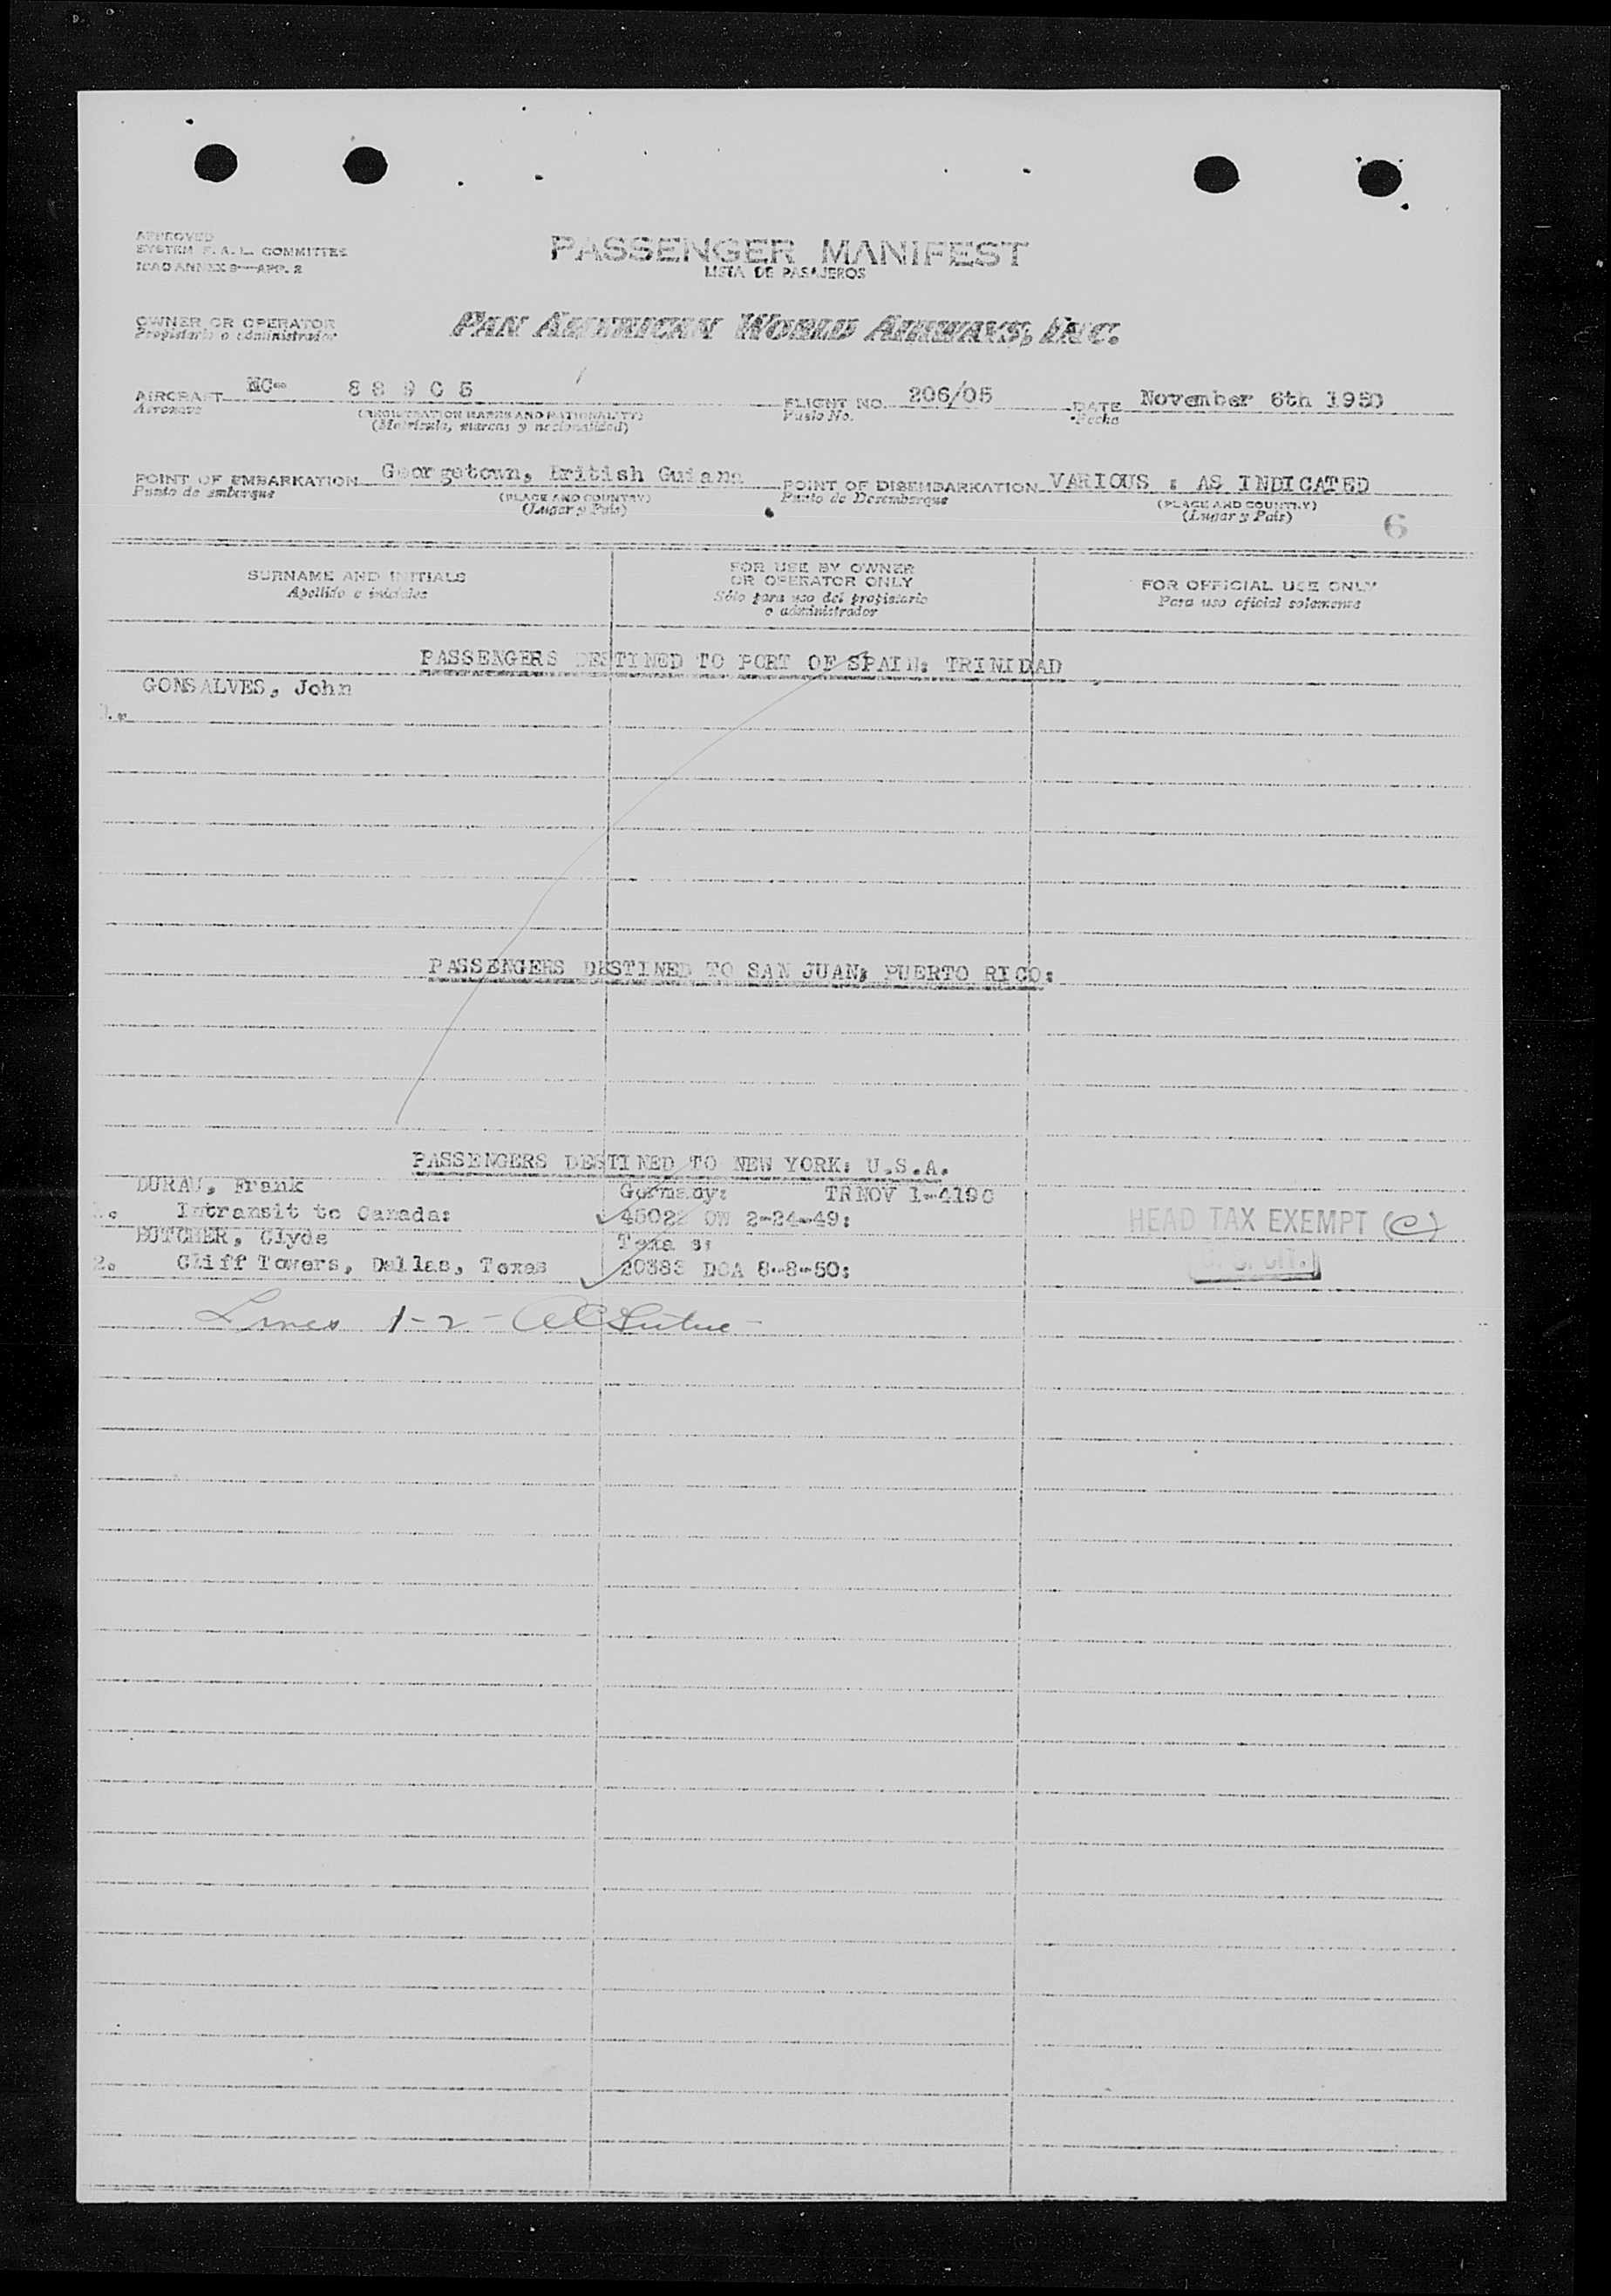 APPROVED
SYSTEM F. A. L. COMMITTEE
ICAO ANNEX 9—APP. 2
PASSENGER MANIFEST
LISTA DE PASAJEROS
OWNER OR OPERATOR
Propietario o administrador
PAN AMERICAN WORLD AIRWAYS, INC.
AIRCRAFT NC- 88905
Aeronave
(REGISTRATION MARKS AND NATIONALITY)
(Matricula, marcas y nacionalidad)
FLIGHT NO. 206/05
Vuelo No.
DATE November 6th 1950
Fecha
POINT OF EMBARKATION Georgetown, British Guiana
Punto de embarque
(PLACE AND COUNTRY)
(Lugar y Pais)
POINT OF DISEMBARKATION VARIOUS : AS INDICATED
Punto de Desembarque
(PLACE AND COUNTRY)
(Lugar y Pais)
6
SURNAME AND INITIALS
Apellido e iniciales
FOR USE BY OWNER
OR OPERATOR ONLY
Sólo para uso del propietario
o administrador
FOR OFFICIAL USE ONLY
Para uso oficial solamente
PASSENGERS DESTINED TO PORT OF SPAIN: TRINIDAD
GONSALVES, John
1.
PASSENGERS DESTINED TO SAN JUAN; PUERTO RICO:
PASSENGERS DESTINED TO NEW YORK: U.S.A.
DURAU, Frank Germany: TRNOV 1-4190
1. Intransit to Canada: 45022 OW 2-24-49:
HEAD TAX EXEMPT (C)
BUTCHER, Clyde Texas:
2. Cliff Towers, Dallas, Texas 20383 DOA 8-8-50:
U. S. CIT.
Lines 1-2-